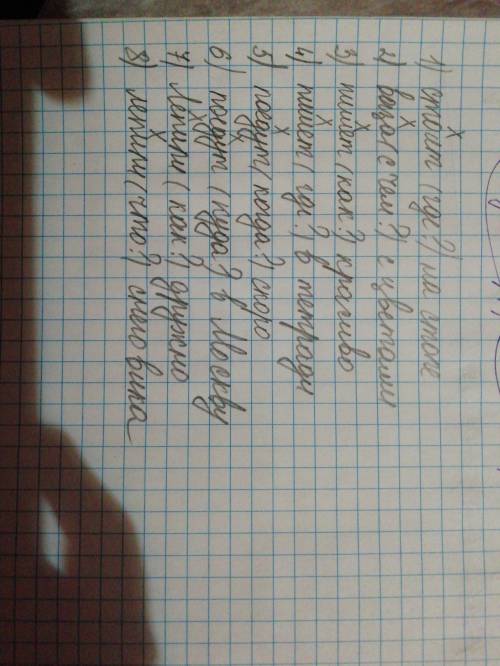 1) стоит (где?) на столе
2) ваза (с чем?) с цветами
3) пишет (как?) красиво
4) пишет (где?) в тетради
5) поедут (когда?) скоро
6) поедут (куда?) в Москву
7) лепили (как?) дружно
8) лепили (что?) снеговика